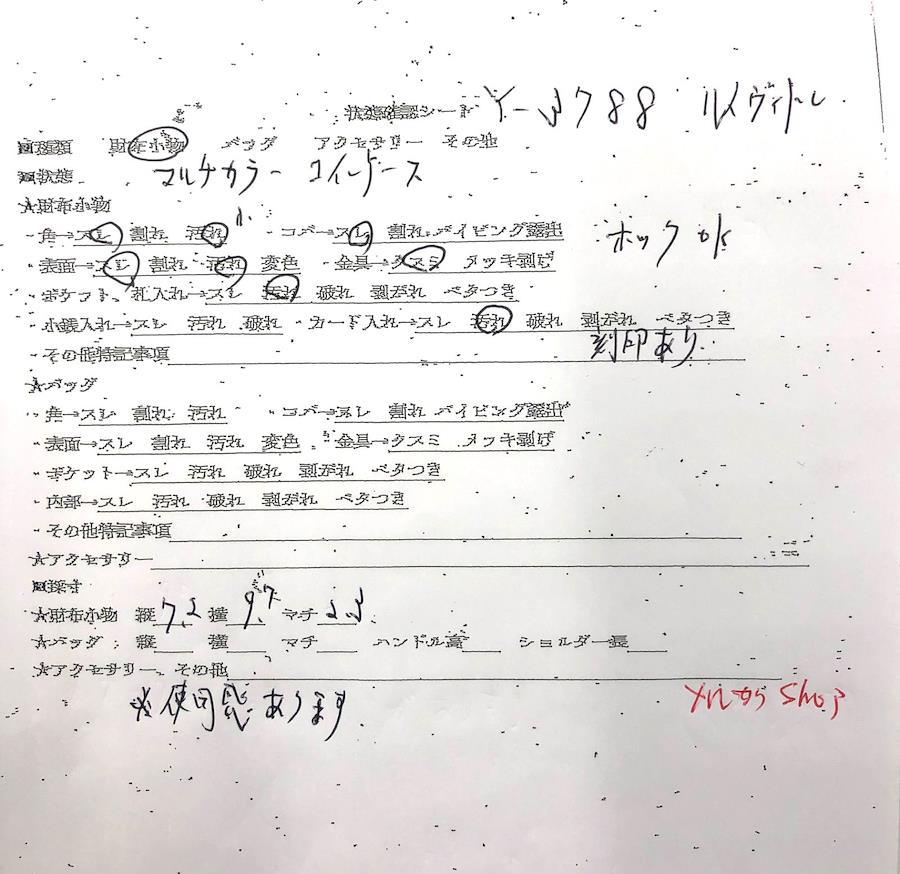 状態確認シート Y-3788 ルイヴィトン
■種類 財布小物 バッグ アクセサリー その他
■状態 マルチカラー コインケース
★財布小物
・角→スレ 割れ 汚れ ・コバ→スレ 割れ パイピング露出 ホック ok
・表面→スレ 割れ 汚れ 変色 ・金具→クスミ メッキ剥げ
・ポケット、札入れ→スレ 汚れ 破れ 剥がれ ベタつき
・小銭入れ→スレ 汚れ 破れ ・カード入れ→スレ 汚れ 破れ 剥がれ ベタつき
・その他特記事項 刻印あり
★バッグ
・角→スレ 割れ 汚れ ・コバ→スレ 割れ パイピング露出
・表面→スレ 割れ 汚れ 変色 ・金具→クスミ メッキ剥げ
・ポケット→スレ 汚れ 破れ 剥がれ ベタつき
・内部→スレ 汚れ 破れ 剥がれ ベタつき
・その他特記事項
★アクセサリー
■採寸
★財布小物 縦 7.2 横 9.7 マチ 2.3
★バッグ：縦 横 マチ ハンドル高 ショルダー長
★アクセサリー、その他
※使用感あります メルカリ Shop